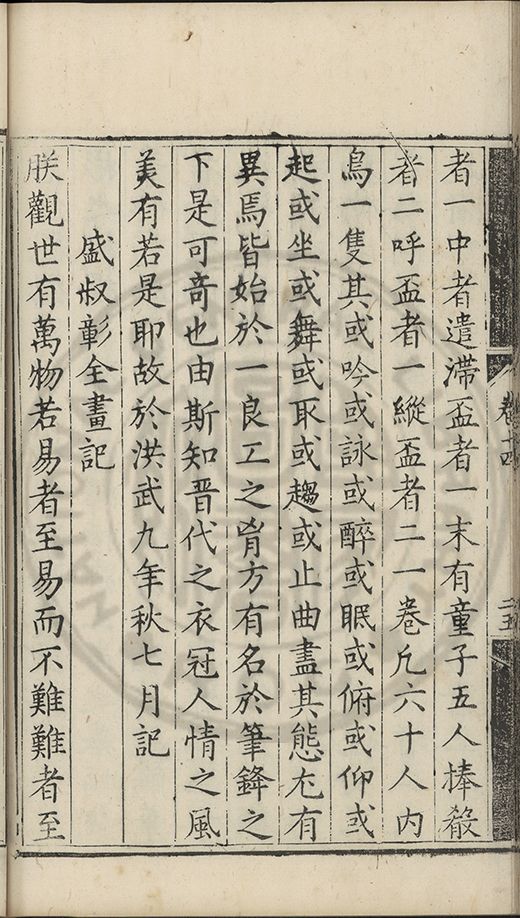 者一中者遣滯盃者一末有童子五人捧殽
者二呼盃者一縱盃者二一卷凡六十人内
鳥一隻其或吟或詠或醉或眠或俯或仰或
起或坐或舞或耴或趨或止曲盡其態尤有
異焉皆始於一良工之胷方有名於筆鋒之
下是可竒也由斯知晋代之衣冠人情之風
美有若是耶故於洪武九年秋七月記
盛叔彰全畫記
朕觀世有萬物若易者至易而不難難者至
卷十四
二五